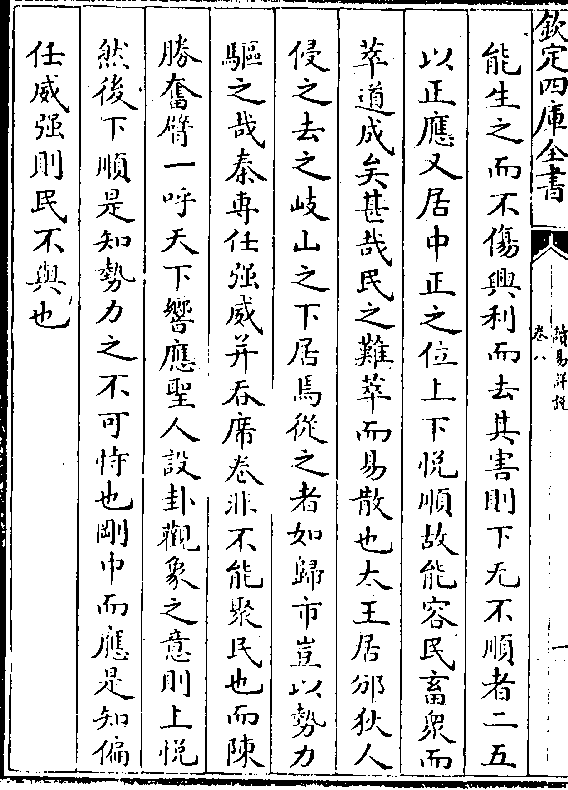 欽定四庫全書
讀易詳說
卷八
一
能生之而不傷興利而去其害則下无不順者二五
以正應又居中正之位上下悅順故能容民畜衆而
萃道成矣甚哉民之難萃而易散也太王居邠狄人
侵之去之岐山之下居焉從之者如歸市豈以勢力
驅之哉秦專任强威并吞席卷非不能聚民也而陳
勝奮臂一呼天下響應聖人設卦觀象之意則上悅
然後下順是知勢力之不可恃也剛中而應是知偏
任威强則民不與也